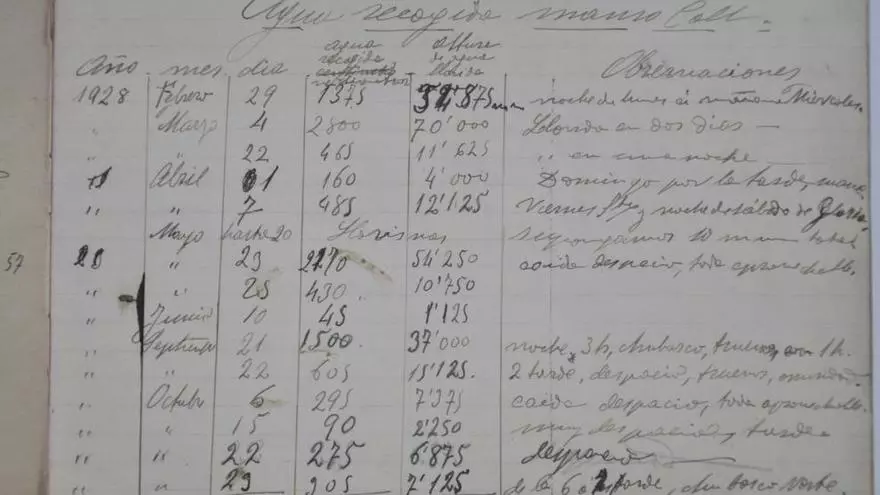 Agua recogida mano Coll.
Año mes dia agua recogida altura de agua llovida Observaciones
1928 Febrero 29 1375 34'875 mm noche de lunes á mañana Miércoles.
" Março 4 2800 70'000 Llovida en dos dias —
" " 22 465 11'625 " en una noche —
" Abril 01 160 4'000 Domingo por la tarde,
" " 7 485 12'125 Viernes Sto y noche de sábado de Gloria
Mayo hasta 20 Lloviznas 10 mm total
57 28 " 23 2170 54'250 caida despacio, toda aprovechable.
" " 25 430. 10'750
" Junio 10 45 1'125
" Septiembre 21 1.500. 37'000 noche, 3 h, chubasco, truenos, en 1 h.
" " 22 605 15'125. 2 tarde, despacio, truenos,
" Octubre 6 295 7'375 caida despacio, toda aprovechable.
" " 15 90 2'250 muy despacio, tarde
" " 22 275 6'875 despacio
" " 23 205 7'125 de la 6 a tarde, chubasco noche.